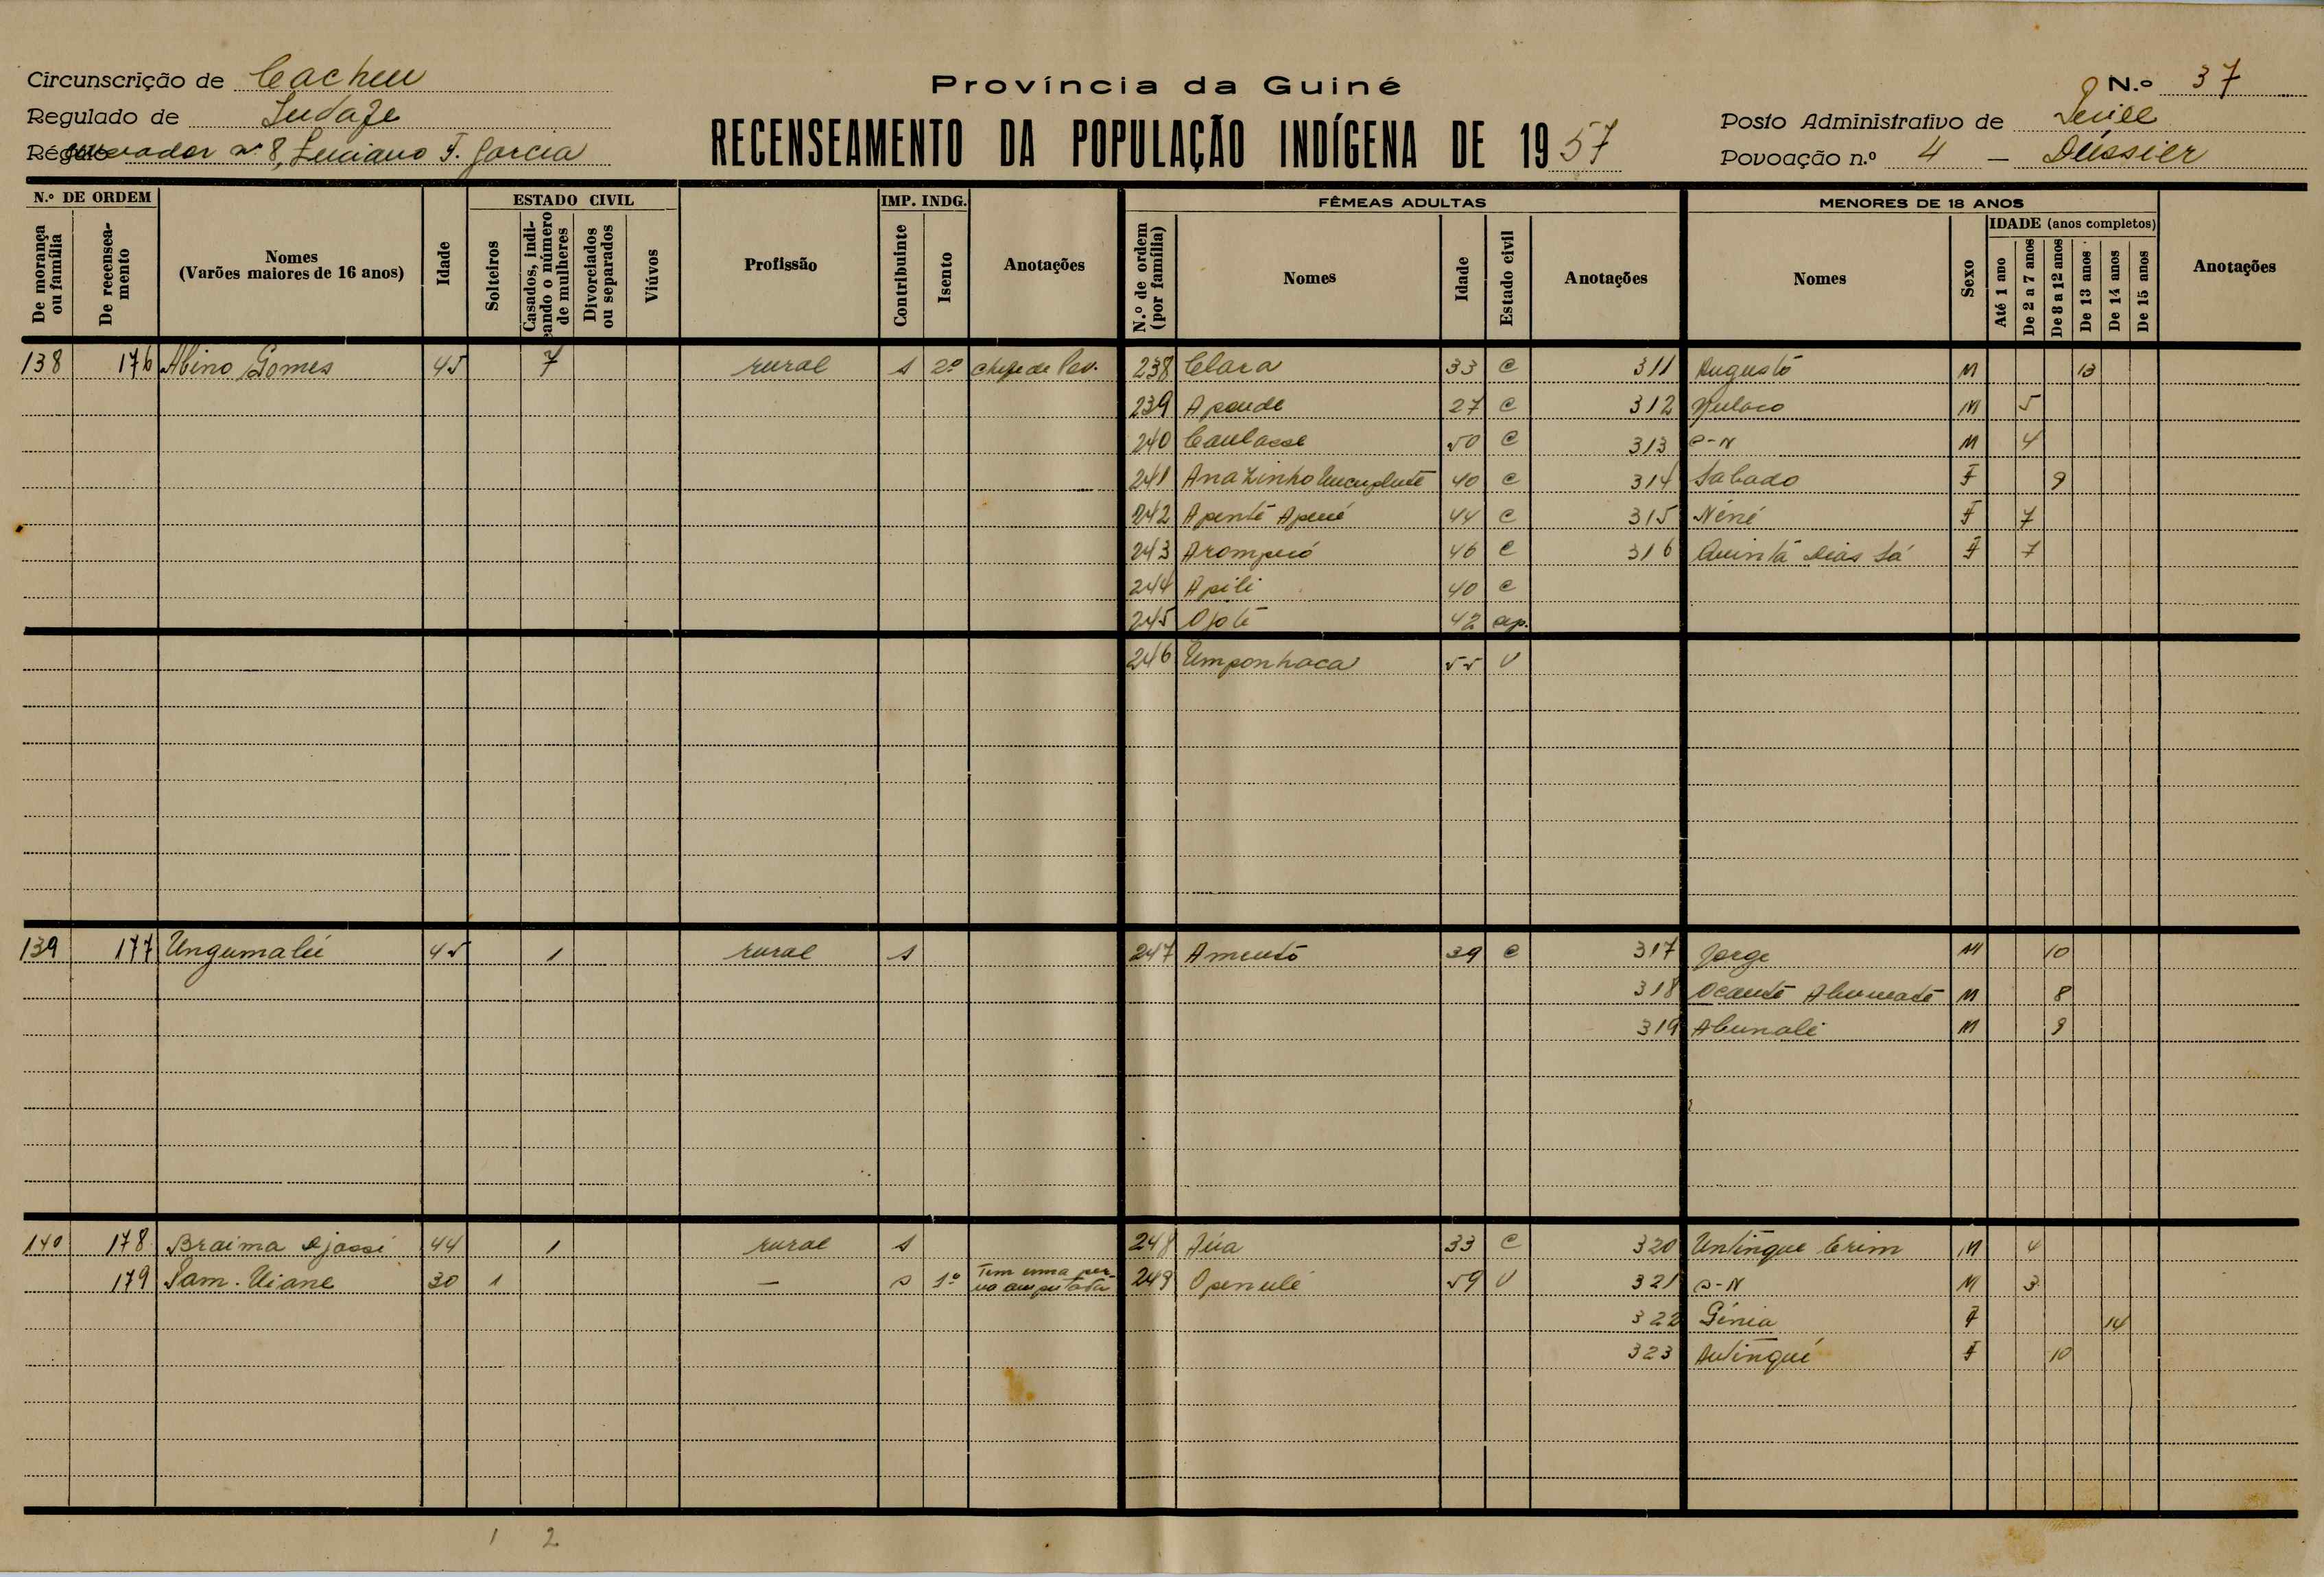 Circunscrição de Cacheu
Província da Guiné
N.º 37
Regulado de
RECENSEAMENTO DA POPULAÇÃO INDÍGENA DE 1957
Posto Administrativo de
nº 8, Luciano F. Garcia
Povoação n.º 4 –
N.º DE ORDEM
De morança ou família
De recenseamento
Nomes
(Varões maiores de 16 anos)
Idade
ESTADO CIVIL
Solteiros
Casados, indicando o número de mulheres
Divorciados ou separados
Viúvos
Profissão
IMP. INDG.
Contribuinte
Isento
Anotações
FÊMEAS ADULTAS
N.º de ordem (por família)
Nomes
Idade
Estado civil
Anotações
MENORES DE 18 ANOS
Nomes
Sexo
IDADE (anos completos)
Até 1 ano
De 2 a 7 anos
De 8 a 12 anos
De 13 anos
De 14 anos
De 15 anos
Anotações
138 176 Albino Gomes 45 7 rural s 2º chefe de Pov. 238 Clara 33 C 311 Augusto M 13
239 Apende 27 C 312 M 5
240 50 C 313 S-N M 4
241 Anazinho 40 C 314 Sabado F 9
242 44 C 315 Néné F 7
243 46 C 316 Quintá Dias Sá F 7
244 Apili 40 C
245 Ojoté 42 sep.
246 Umponhaca 55 V
139 177 45 1 rural s 247 39 C 317 Jorge M 10
318 M 8
319 Abunali M 9
140 178 Braima Djassi 44 1 rural s 248 33 C 320 M 4
179 30 1 – s 1º Tem uma perna amputada 249 59 V 321 S-N M 3
322 F 14
323 F 10
1 2